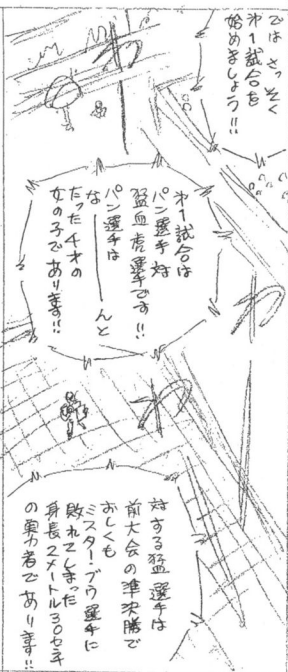 では さっそく
第1試合を
始めましょう!!
わ
第1試合は
パン選手対
猛血虎選手です!!
パン選手は
な――――んと
たった4才の
女の子であります!!
わ
わ
対する猛選手は
前大会の準決勝で
おしくも
ミスター・ブウ選手に
敗れてしまった
身長2メートル30センチ
の実力者であります!!